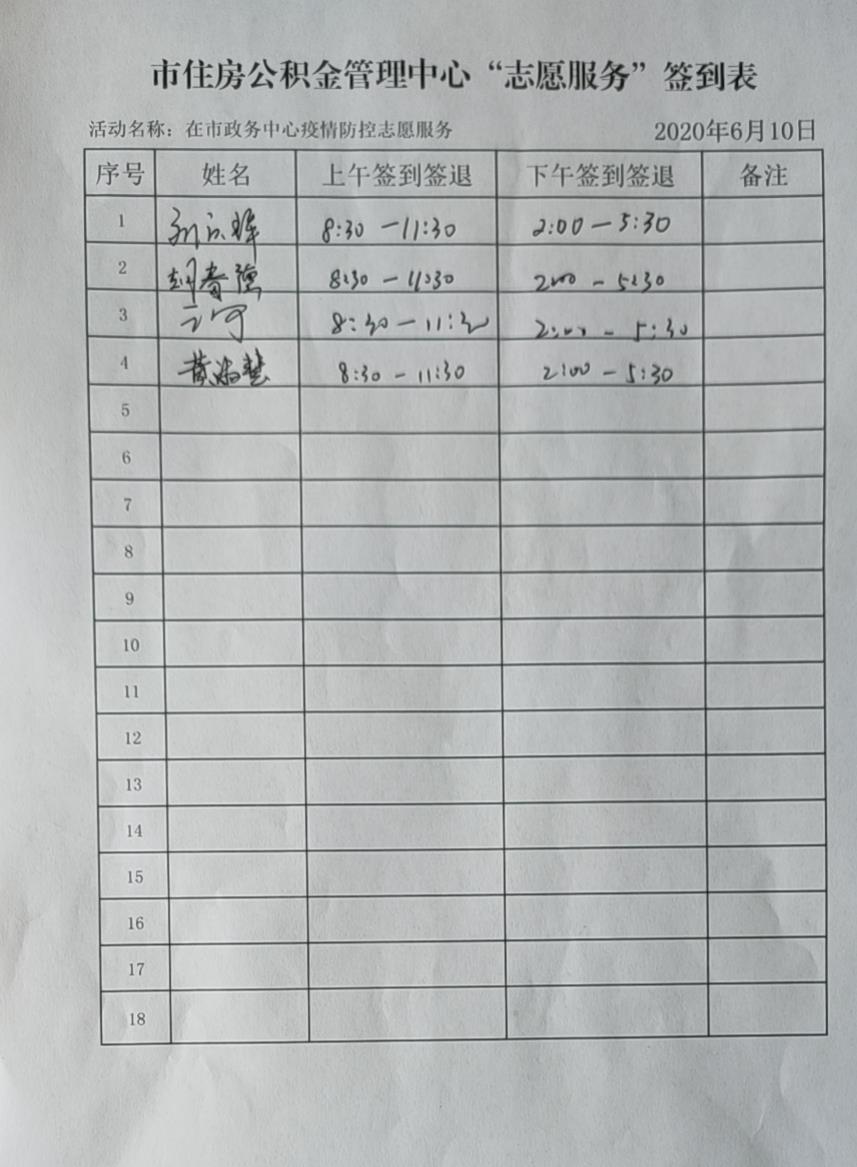 市住房公积金管理中心“志愿服务”签到表
活动名称：在市政务中心疫情防控志愿服务 2020年6月10日
序号 姓名 上午签到签退 下午签到签退 备注
1 8:30 — 11:30 2:00 — 5:30
2 8:30 — 11:30 2:00 — 5:30
3 8:30 — 11:30 2:00 — 5:30
4 8:30 — 11:30 2:00 — 5:30
5
6
7
8
9
10
11
12
13
14
15
16
17
18